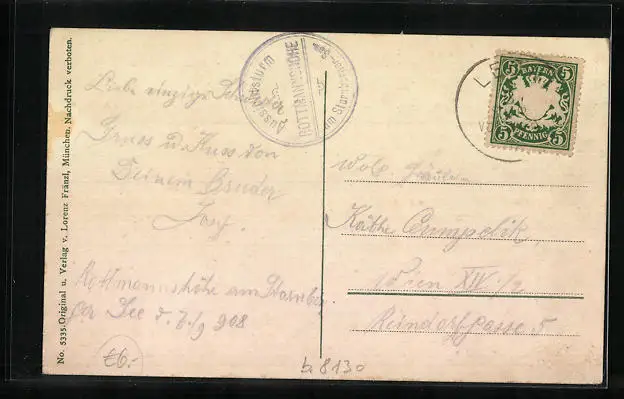 No. 5335. Original u. Verlag v. Lorenz Fränzl, München. Nachdruck verboten.
Liebe einzige
Gruss u Kuss von
Deinem Bruder
Rottmannshöhe am Starnber
ger See d. 7./9 908
Aussichtsturm
ROTTMANNSHÖHE
am Starnberger-See
5 BAYERN 5
5 PFENNIG 5
LE
Wolg. Fräulein
Käthe
Wien XIV/2
Reindorfgasse 5
£6.-
b 8130